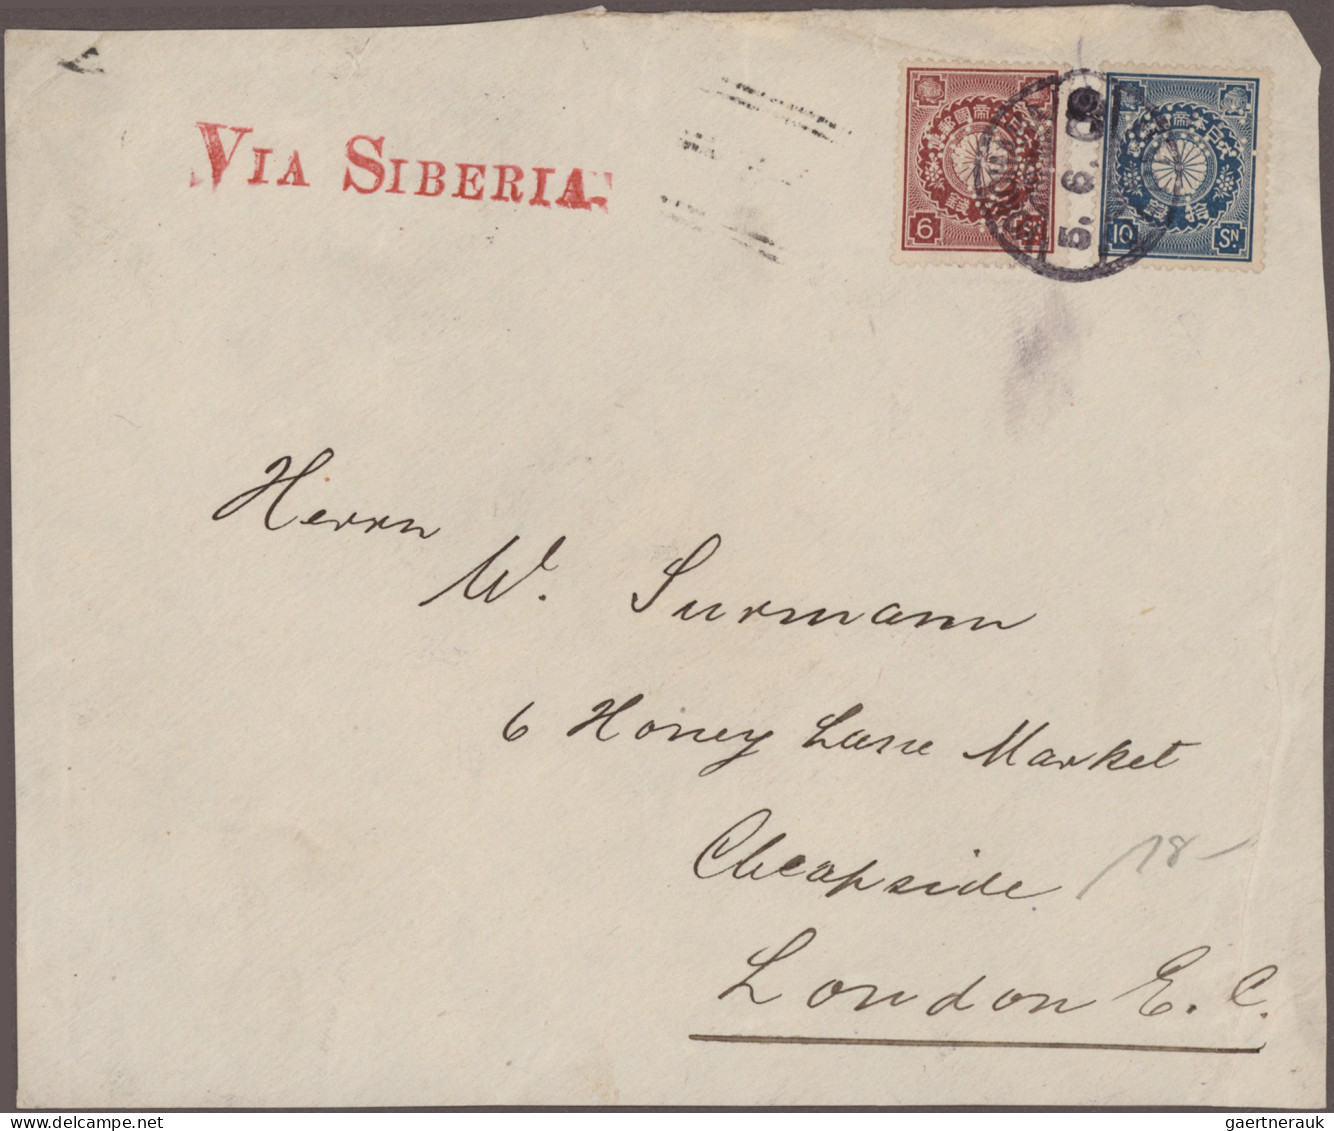 VIA SIBERIA
6 SN.
10 SN.
5. 6. 08
Herrn
W. Surmann
6 Honey Lane Market
Cheapside
18-
London E. C.
gaertnerauk